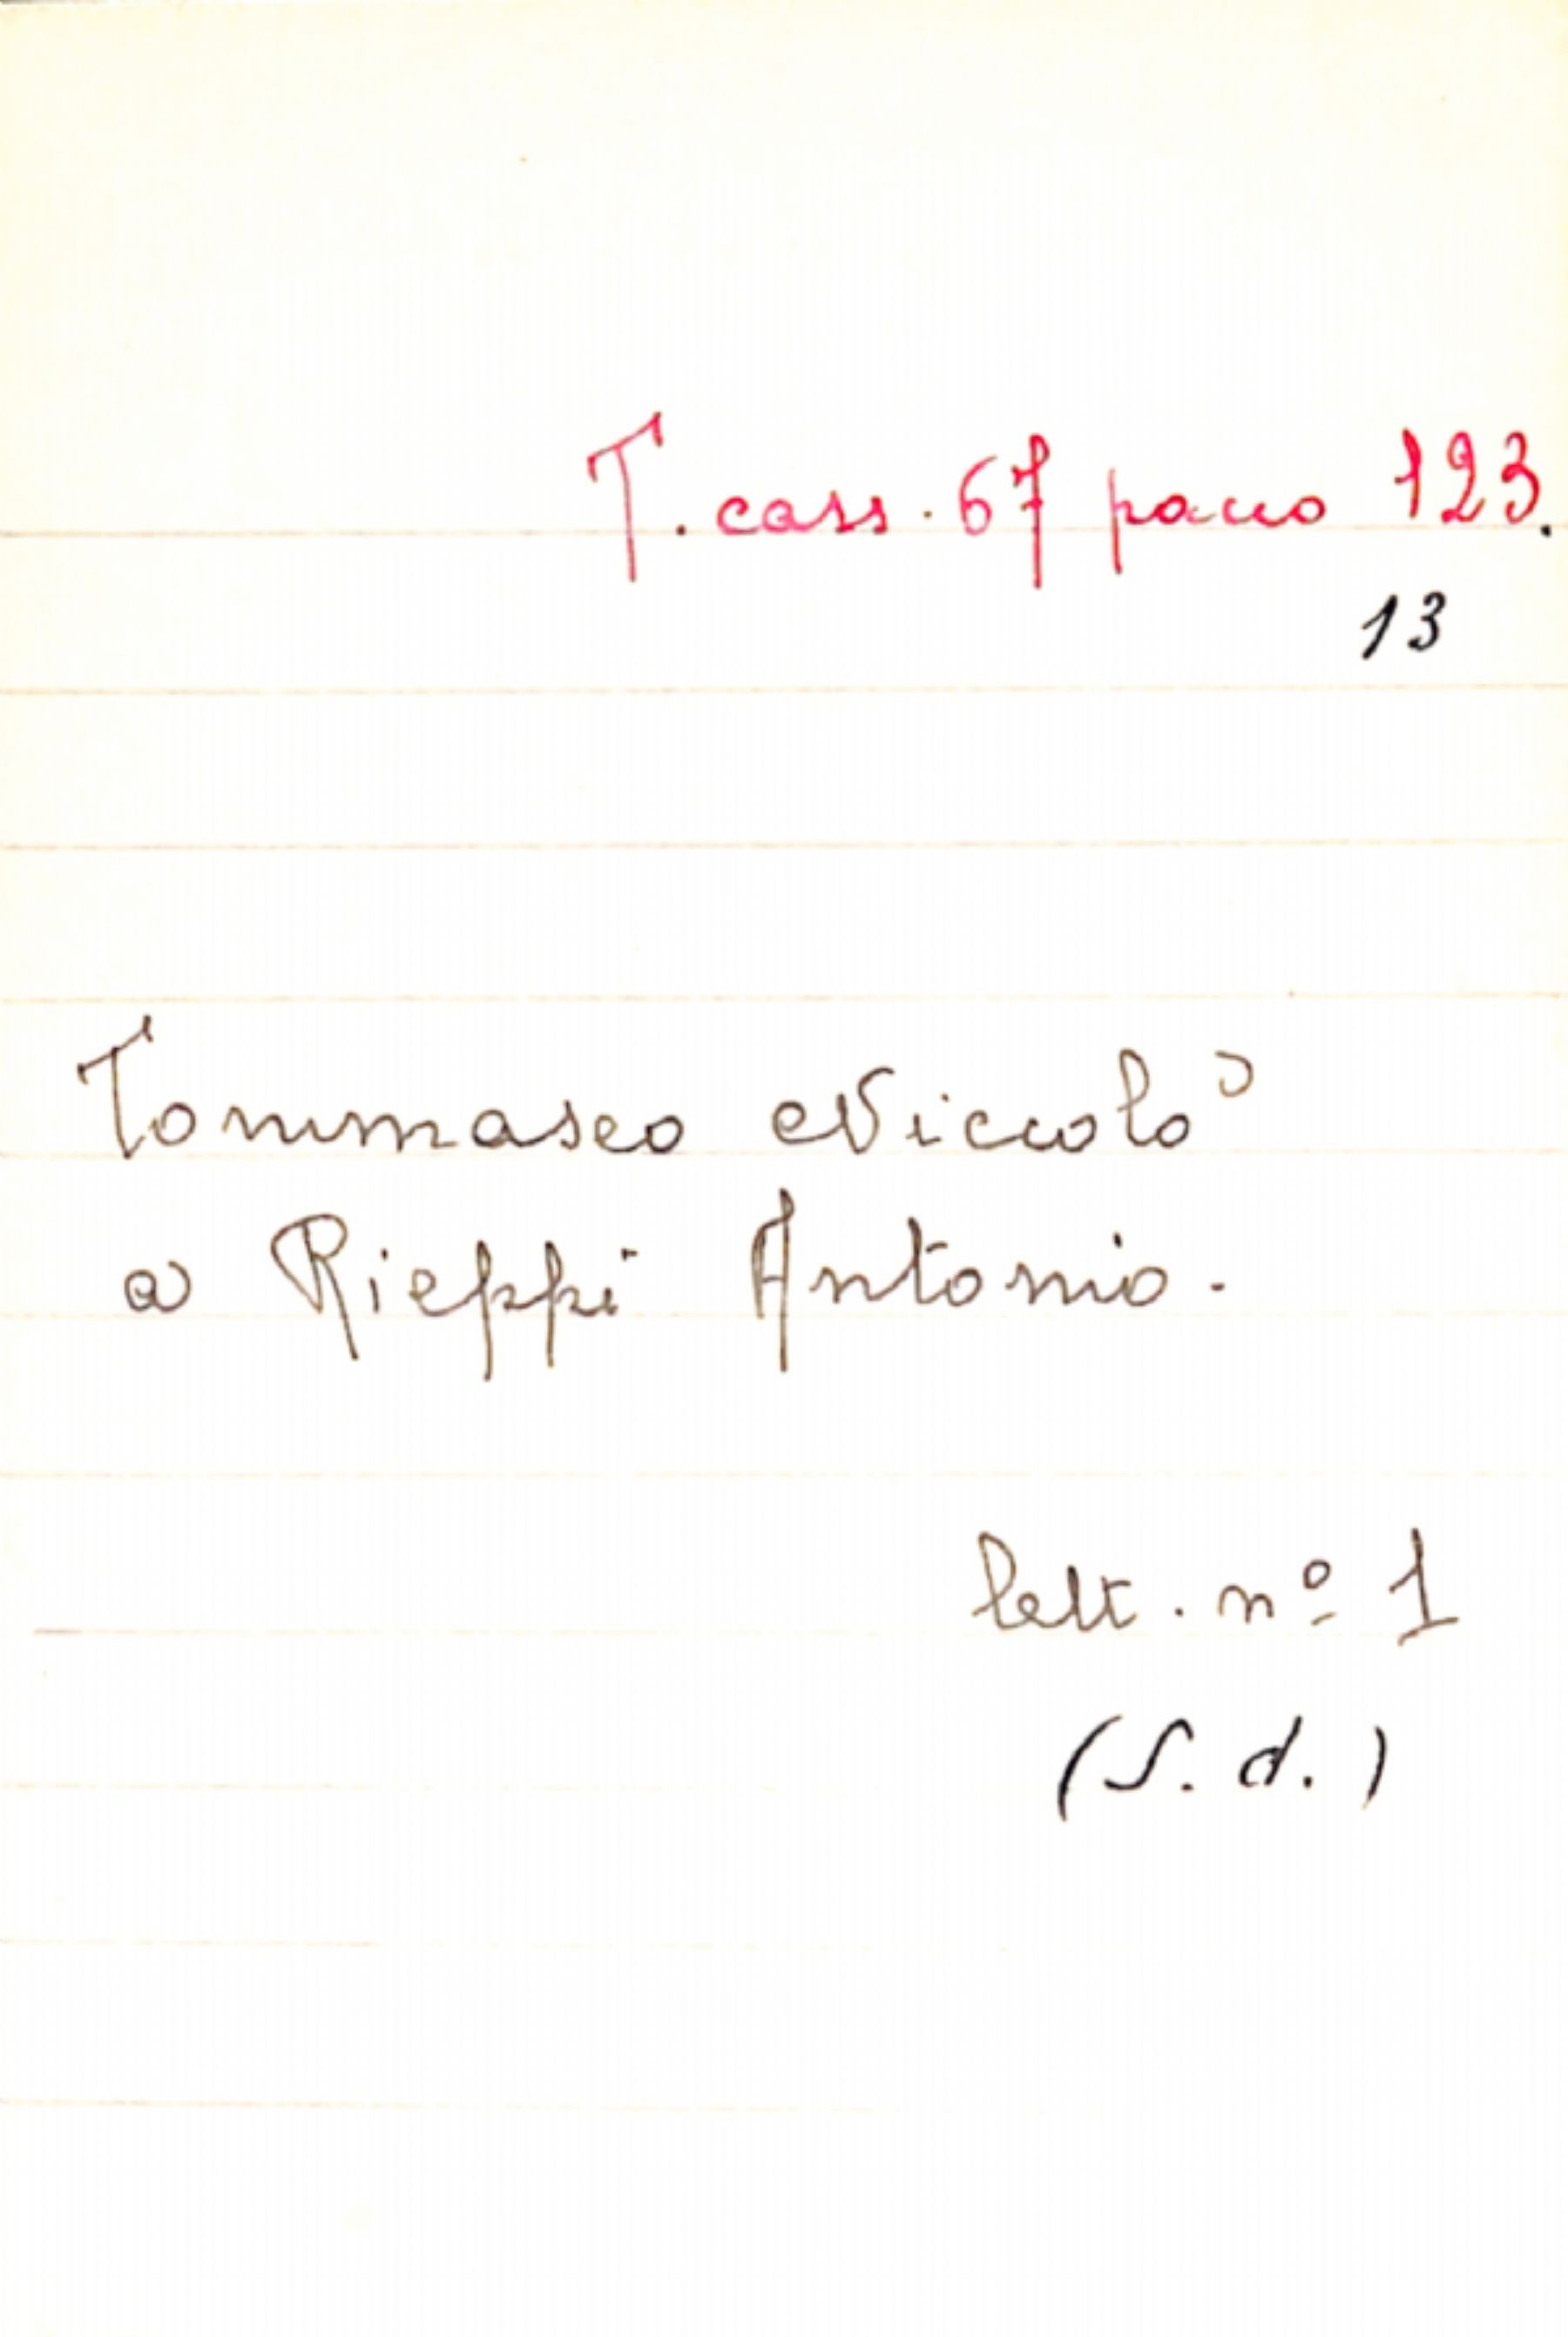 T. cass. 67 pacco 123.
13
Tommaseo Niccolò
a Rieppi Antonio.
lett. nº 1
(S. d.)